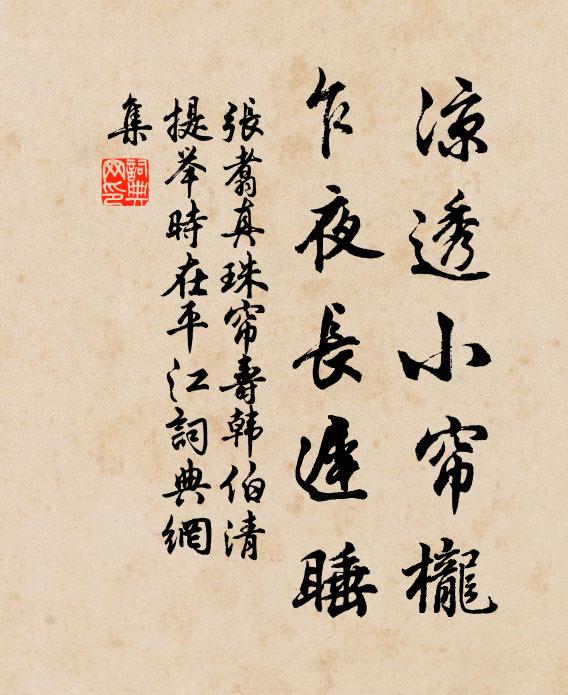 涼透小帘櫳
乍夜長遲睡
張翥真珠帘壽韩伯清
提举時在平江詞典網
集
詞典网印